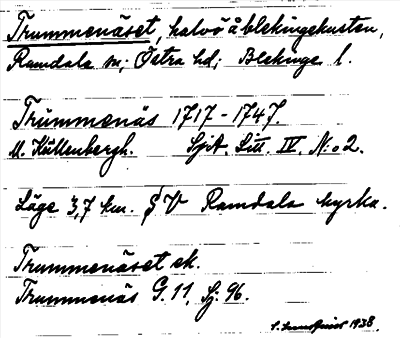 Trummenäset, halvö å blekingekusten,
Ramdala sn; Östra hd; Blekinge l.
Trümmenäs 1717-1747.
M. Källenbergh. SjA. Litt. IV. N:o 2.
Läge 3,7 km. SV Ramdala kyrka.
Trummenäset ek.
Trummenäs G. 11, Sj: 96.
1938.